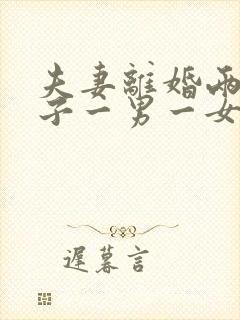 夫妻離婚兩
子一男一女
遲暮言